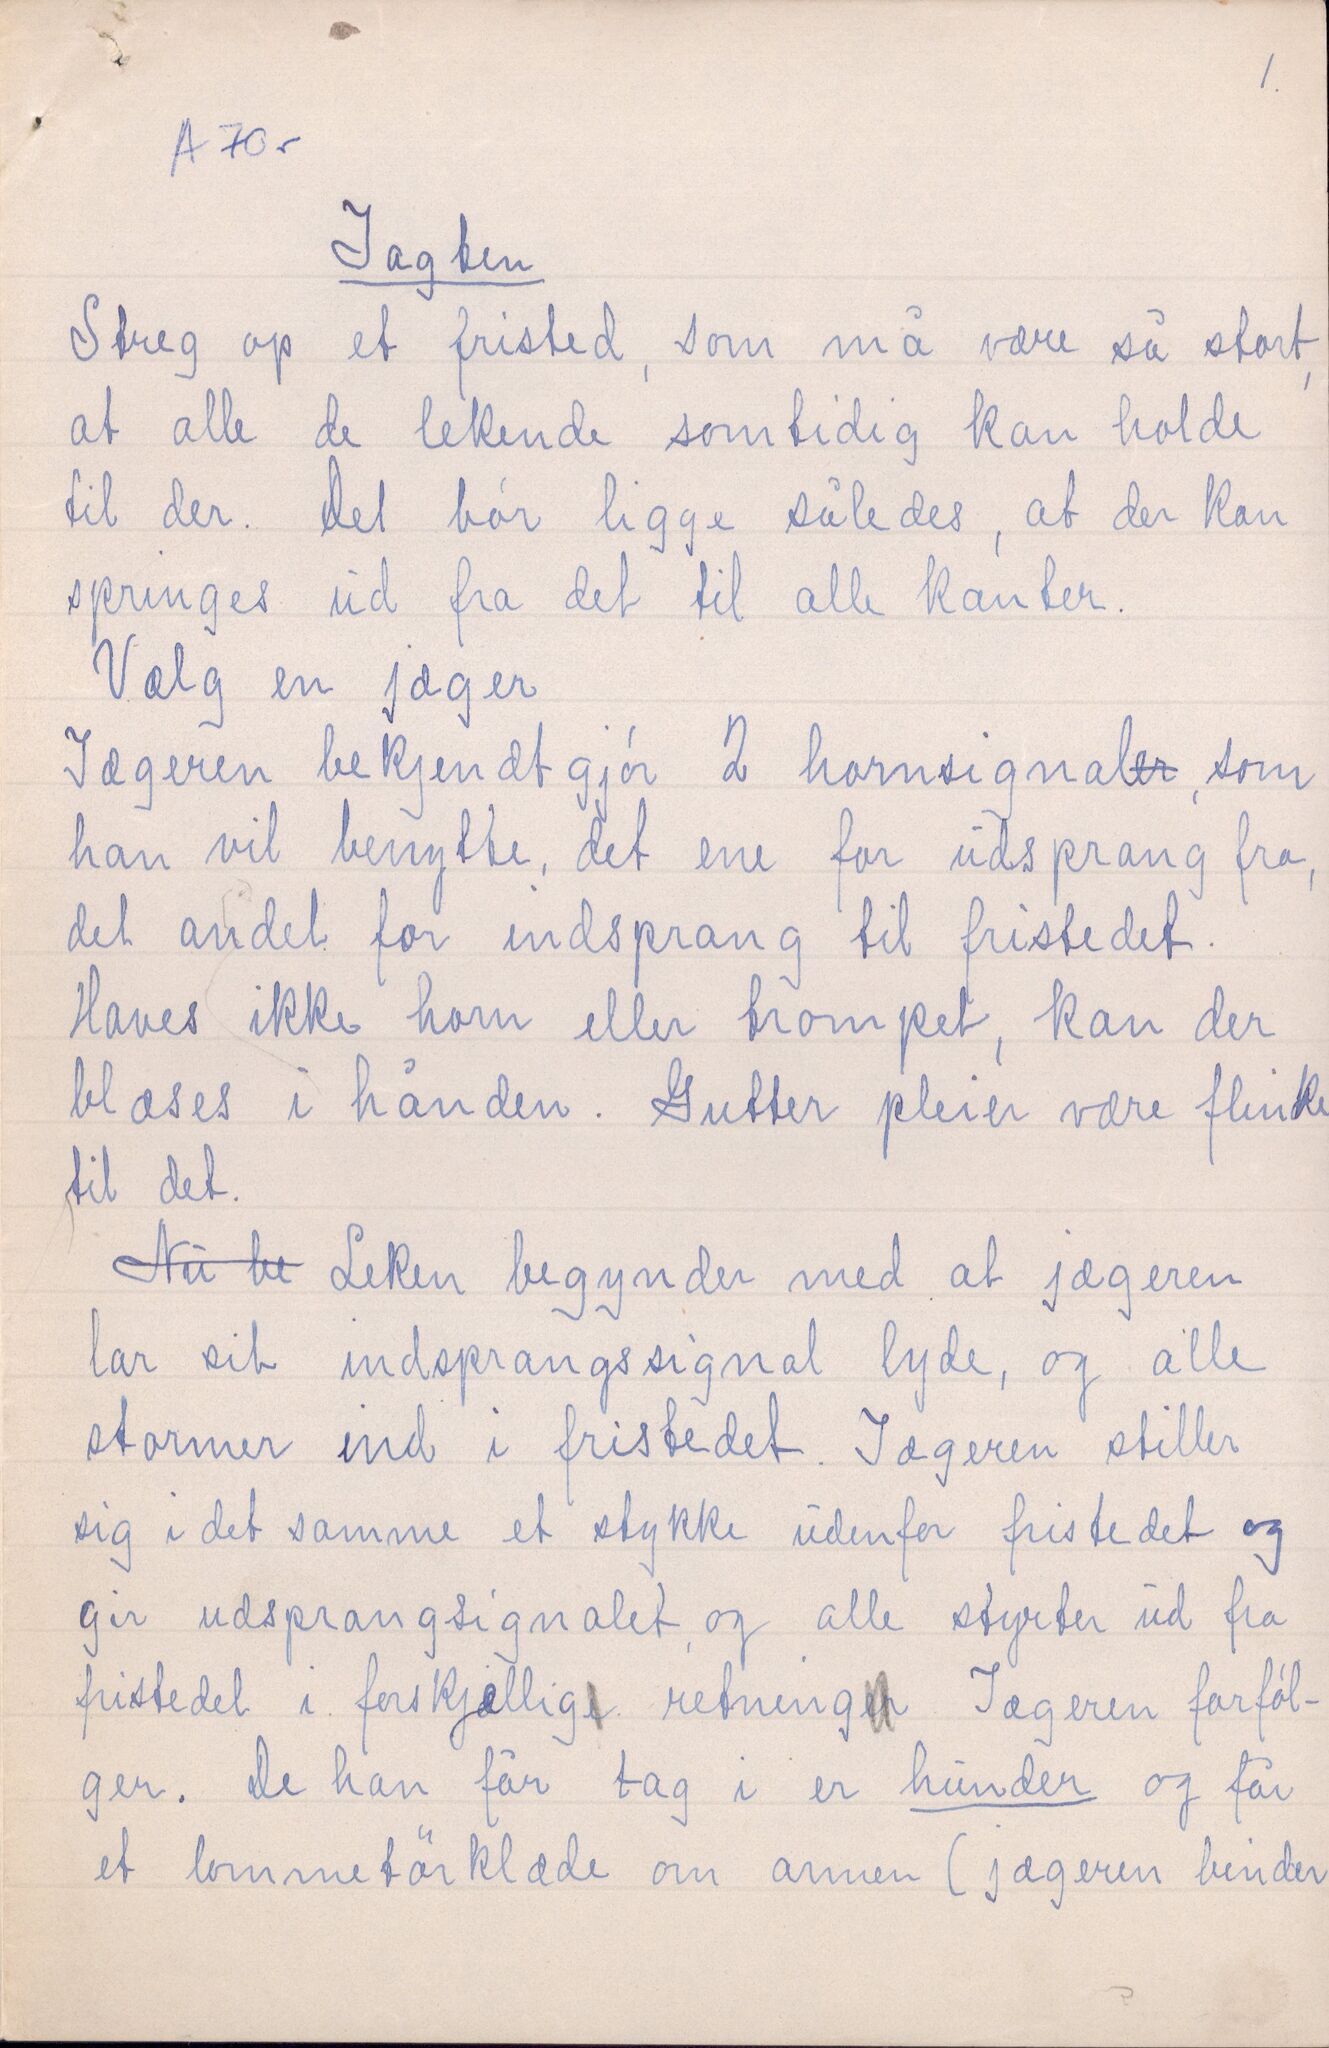 1.
A 70
Jagten
Streg op et fristed, som må være så stort,
at alle de lekende somtidig kan holde
til der. Det bór ligge således, at der kan
springes ud fra det til alle kanter.
Vælg en jæger
Jægeren bekjendtgjór 2 hornsignaler, som
han vil benytte, det ene for udsprang fra,
det andet for indsprang til fristedet.
Haves ikke horn eller trompet, kan der
blæses i hånden. Gutter pleier være flinke
til det.
Nu be Leken begynder med at jægeren
lar sit indsprangssignal lyde, og alle
stormer ind i fristedet. Jægeren stiller
sig i det samme et stykke udenfor fristedet og
gir udsprangsignalet, og alle styrter ud fra
fristedet i forskjællige retninger Jægeren forföl-
ger. De han får tag i er hunder og får
et lommetörklæde om armen (jægeren binder